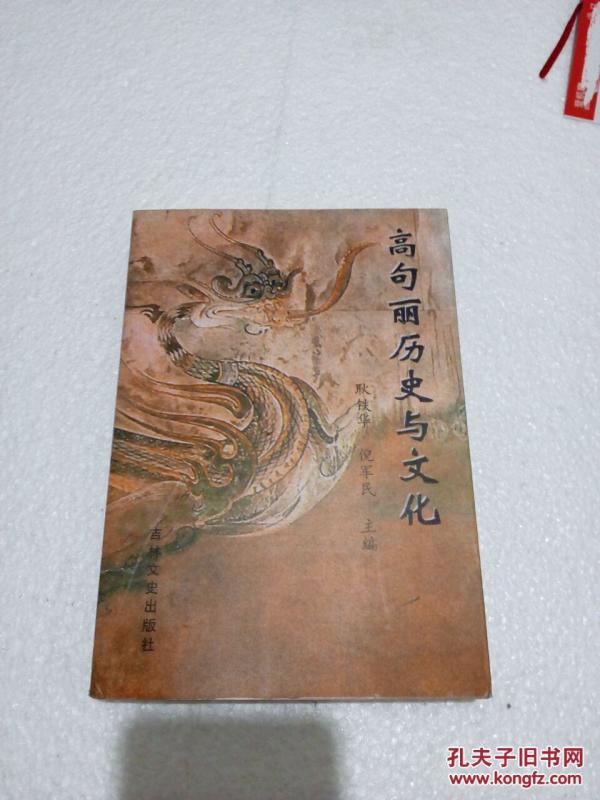 高句丽历史与文化
耿铁华 倪军民 主编
吉林文史出版社
孔夫子旧书网
www.kongfz.com